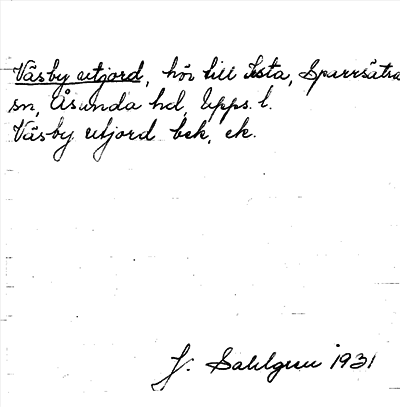 Väsby utjord, hör till Testa, Sparrsätra
sn, Åsunda hd, Upps. l.
Väsby utjord bek, ek.
J. Sahlgren 1931